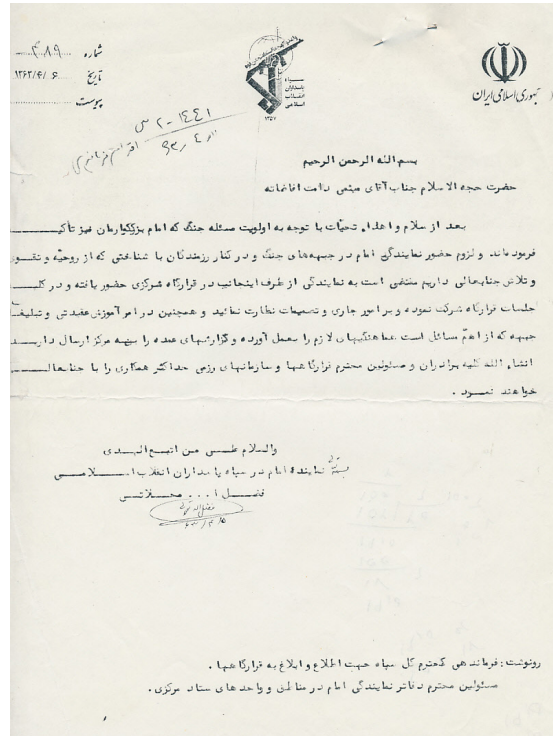 جمهوری اسلامی ایران
سپاه
پاسداران
انقلاب
اسلامی
۱۳۵۷
شماره ۴۸۹
تاریخ ۱۳۶۲/۴/۶
پیوست
بسم الله الرحمن الرحیم
حضرت حجه الاسلام جناب آقای میثمی دامت افاضاته
بعد از سلام و اهداء تحیّات با توجه به اولویت مسئله جنگ که امام بزرگوارمان نیز تأکید
فرموده‌اند و لزوم حضور نمایندگی امام در جبهه‌های جنگ و در کنار رزمندگان با شناختی که از روحیّه و تقوی
و تلاش جنابعالی داریم مقتضی است به نمایندگی از طرف اینجانب در قرارگاه مرکزی حضور یافته و در کلیه
جلسات قرارگاه شرکت نموده و بر امور جاری و تصمیمات نظارت نمائید و همچنین در امر آموزش عقیدتی و تبلیغات
جبهه که از اهمّ مسائل است هماهنگیهای لازم را بعمل آورده و گزارشهای عمده را به مرکز ارسال دارید
انشاء الله کلیه برادران و مسئولین محترم قرارگاهها و سازمانهای رزمی حداکثر همکاری را با جنابعالی
خواهند نمود .
والسلام علی من اتبع الهدی
نماینده امام در سپاه پاسداران انقلاب اسلامی
فضل ا... محلاتی
رونوشت : فرماندهی محترم کل سپاه جهت اطلاع و ابلاغ به قرارگاهها .
مسئولین محترم دفاتر نمایندگی امام در مناطق و واحدهای ستاد مرکزی .